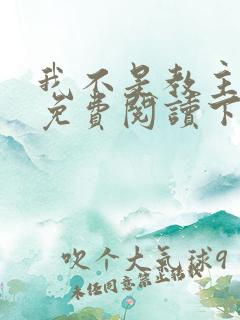 我不是教主
免費閱讀下
吹个大氣球9
未经同意禁止转载